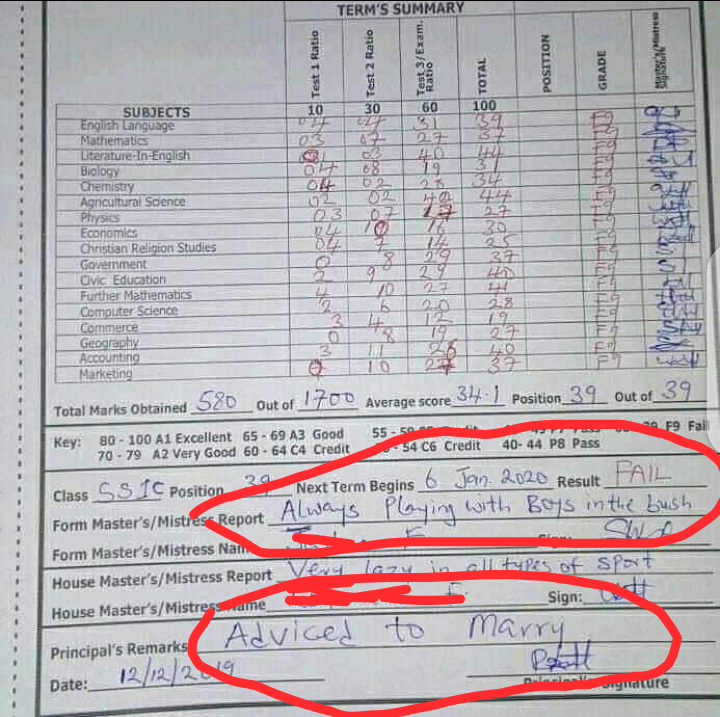 TERM'S SUMMARY
SUBJECTS Test 1 Ratio Test 2 Ratio Test 3/Exam. Ratio TOTAL POSITION GRADE Master's/Mistress Signature
10 30 60 100
English Language 04 04 31 39 F9
Mathematics 03 07 27 37 F9
Literature-In-English 03 40 44 F9
Biology 04 08 19 31 F9
Chemistry 04 02 28 34 F9
Agricultural Science 02 02 40 44 F9
Physics 03 07 17 27 F9
Economics 04 10 16 30 F9
Christian Religion Studies 04 7 14 25 F9
Government 0 8 29 37 F9
Civic Education 2 9 29 40 F9
Further Mathematics 4 10 27 41 F9
Computer Science 2 6 20 28 F9
Commerce 3 4 12 19 F9
Geography 0 8 19 27 F9
Accounting 3 11 26 40 F9
Marketing 0 10 27 37 F9
Total Marks Obtained 580 Out of 1700 Average score 34.1 Position 39 Out of 39
Key: 80 - 100 A1 Excellent 65 - 69 A3 Good 55 - F9 Fail
70 - 79 A2 Very Good 60 - 64 C4 Credit 54 C6 Credit 40- 44 P8 Pass
Class SS1C Position 39 Next Term Begins 6 Jan. 2020 Result FAIL
Form Master's/Mistress Report Always Playing with Boys in the bush
Form Master's/Mistress Nam
House Master's/Mistress Report Very lazy in all types of sport
House Master's/Mistress Name Sign:
Principal's Remarks Adviced to Marry
Date: 12/12/2019 Principal's Signature